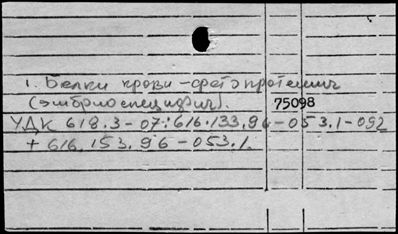 1. Белки крови – фетопротеины
(эмбриоспецифич).
75098
УДК 618.3-07:616.133.96-053.1-092
+ 616.153.96-053.1.